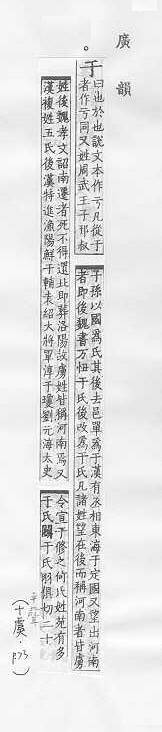 廣韻
。
于
曰也於也說文本作亏凡從于
者作亏同又姓周武王子邘叔
子孫以國爲氏其後去邑單爲于漢有丞相東海于定國又望出河南
者即後魏書万忸于氏後改爲于氏凡諸姓望在後而稱河南者皆虜
姓後魏孝文詔南遷者死不得還北即葬洛陽故虜姓皆稱河南焉又
漢複姓五氏後漢特進漁陽鮮于輔袁紹大將軍淳于瓊劉元海太史
令宣于修之何氏姓苑有多
于氏闟于氏羽俱切二十
(十虞·P73)